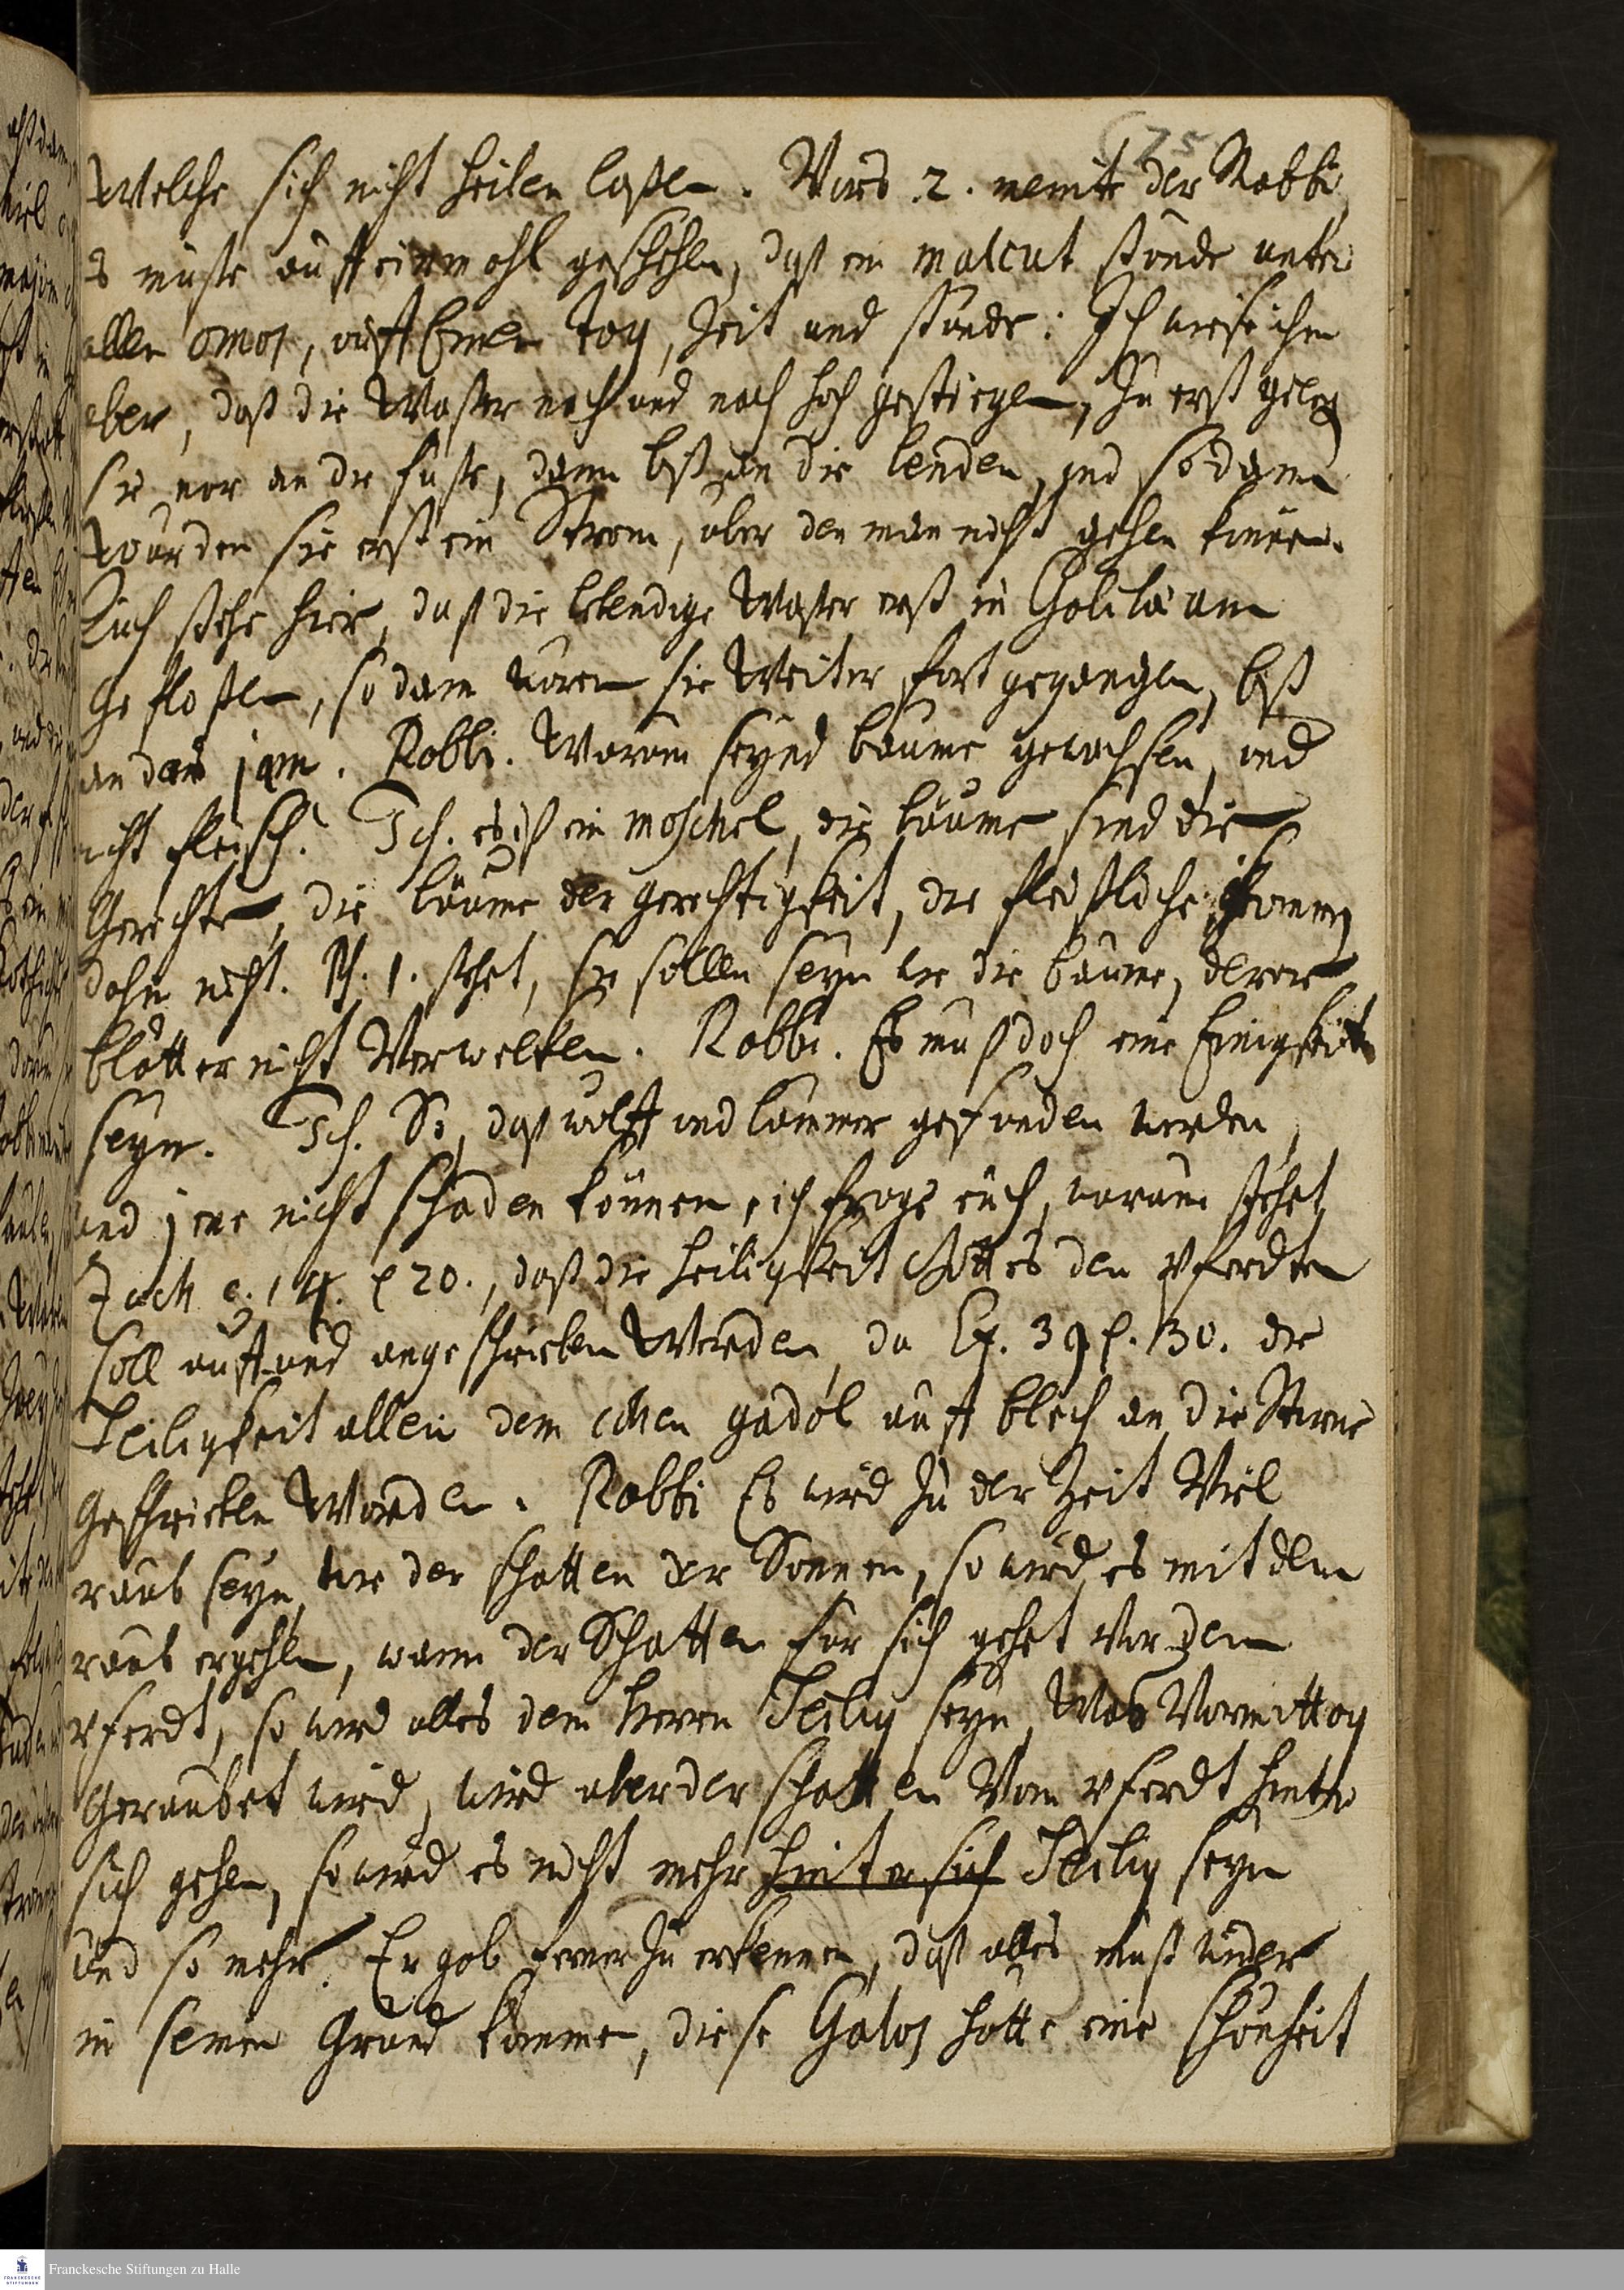 75
welche sich nicht heilen laßen. Vors 2. meinte der Rabbi
es müste auff einmahl geschehen, daß ein malcut stünde unter
allen omos, auff Einen Tag, Zeit und stunde: Ich wiese ihm
aber, daß die Waßer nach und nach hoch gestiegen, Zu erst gieng
sie nur an die füße, dann biß an die lenden, und sodann
wurden sie erst ein Strom, über den man nicht gehen könne.
Auch stehe hier, daß die lebendige Waßer erst in Galilaeam
Gefloßen, sodann wären sie Weiter fort gegangen, biß
an das jam. Rabbi. Warum seynd bäume gewachsen, und
nicht fleisch? Ich. es ist ein moschel, die bäume sind die
Gerechte, die bäume der gerechtigkeit, die fleischliche kommen
dahin nicht. Ps. 1. stehet, sie sollen seyn wie die bäume, deren
blätter nicht Verwelken. Rabbi. Es muß doch eine Einigkeit
seyn. Ich. So, daß wolff und lämmer gefunden werden,
und jene nicht schaden können, ich frage euch, warum stehet
Zach c. 14. v 20., daß die heiligkeit Gottes den Pferdten
soll auff und angeschrieben Werden, da Ex. 39 v. 30. die
Heiligkeit allein dem cohen gadol auff blech an die Stirne
Geschrieben Worden. Rabbi Es wird zu der Zeit Viel
raub seyn, wie der schatten der Sonnen, so wird es mit dem
raub ergehen, wann der Schatten für sich gehet vor dem
Pferdt, so wird alles dem Herrn Heilig seyn, Was Vormittag
Geraubet wird, wird aber der schatten Vom Pferdt hinter
sich gehen, so wird es nicht mehr hinter sich Heilig seyn
und so mehr. Er gab ferner zu erkennen, daß alles muß wider
in seinen Grund kommen, diese Galos hätte eine Schönheit
Franckesche Stiftungen zu Halle